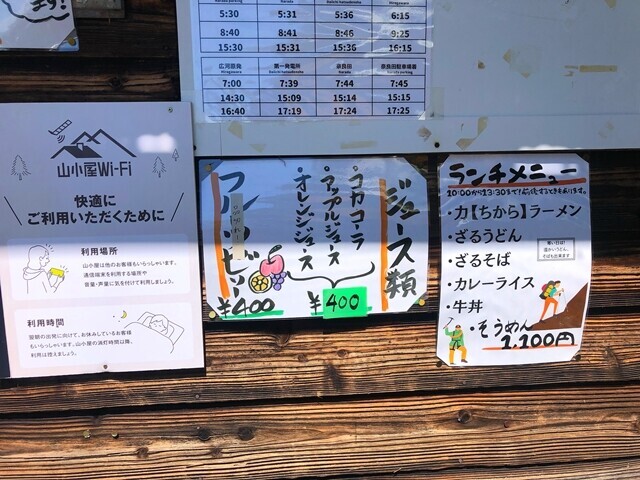 ます!
5:30 5:31 5:36 6:15
8:40 8:41 8:46 9:25
15:30 15:31 15:36 16:15
広河原発 第一発電所 奈良田 奈良田駐車場着
7:00 7:39 7:44 7:45
14:30 15:09 15:14 15:15
16:40 17:19 17:24 17:25
山小屋Wi-Fi
快適に
ご利用いただくために
利用場所
山小屋は他のお客様もいらっしゃいます。
通信端末を利用する場所や
音量・声量に気を付けて利用しましょう。
利用時間
翌朝の出発に向けて、お休みしているお客様
もいらっしゃいます。山小屋の消灯時間以降、
利用は控えましょう。
ジュース類
・コカコーラ
・アップルジュース
・オレンジジュース
¥400
¥400
ランチメニュー
・力【ちから】ラーメン
・ざるうどん
・ざるそば
・カレーライス
・牛丼
・そうめん
1,100円
寒い日は!
温かいうどん、
そばも出来ます